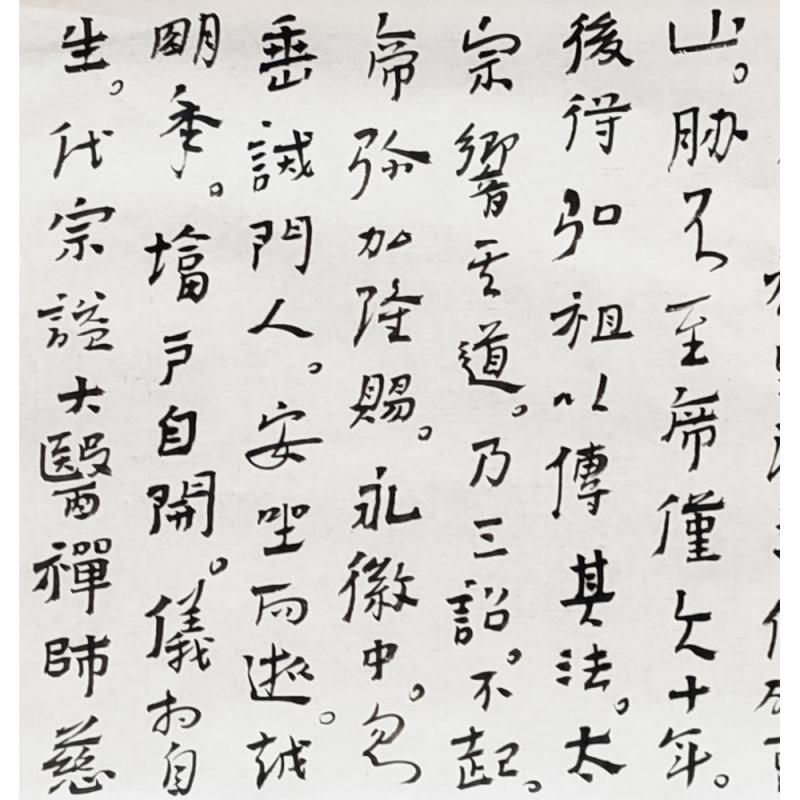 山。胁不至席僅六十年。
後得弘祖以傳其法。太
宗響其道。乃三詔。不起。
帝弥加隆賜。永徽中。忽
垂誡門人。安坐而逝。越
明秊。塔戶自開。儀相自
生。代宗謚大醫禪師慈